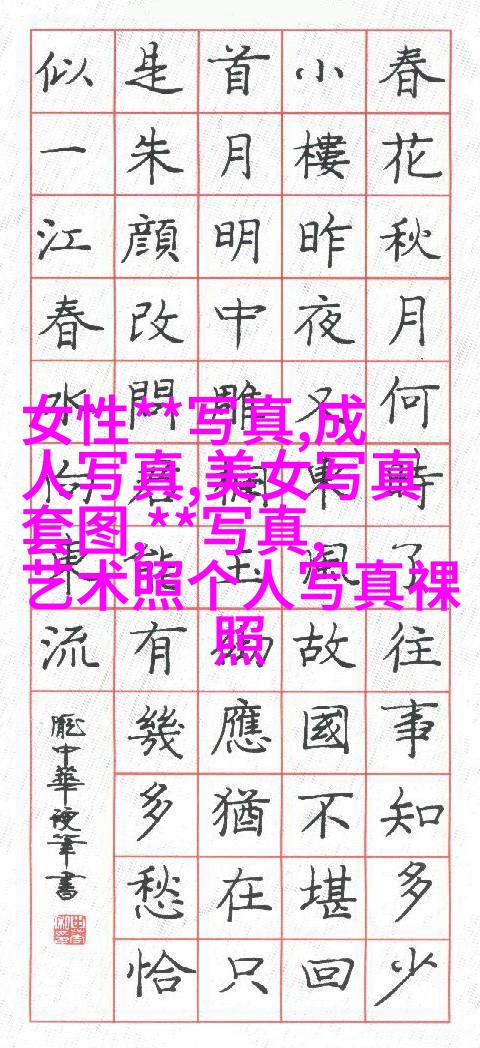 春花秋月何時了往事知多少
小樓昨夜又東風故國不堪回
首月明中雕闌玉砌應猶在只
是朱顔改問君能有幾多愁恰
似一江春水向東流
龐中華硬筆書
女性**写真,成
人写真,美女写真
套图,**写真,
艺术照个人写真裸
照